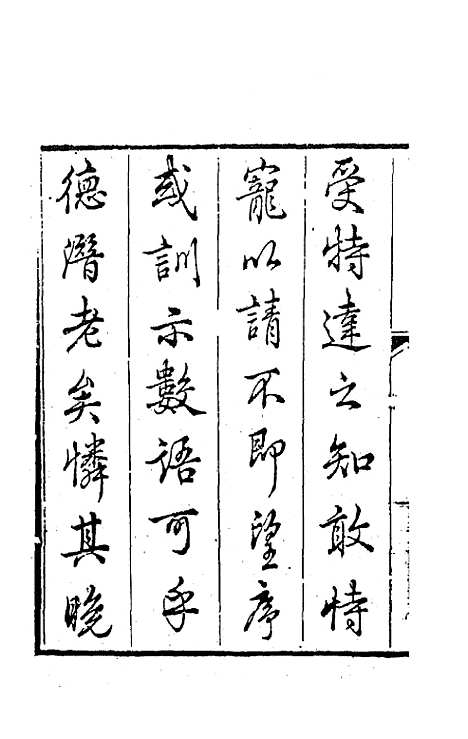 受特達之知敢恃
寵以請不即望序
或訓示數語可乎
德潛老矣憐其晚